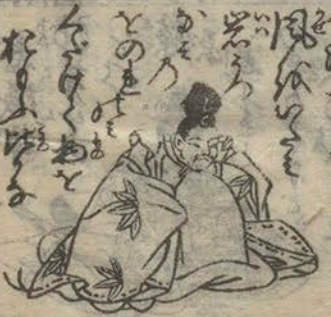 風をいたみ
岩うつ
なみの
をのれのみ
くだけて物を
おもふ比かな